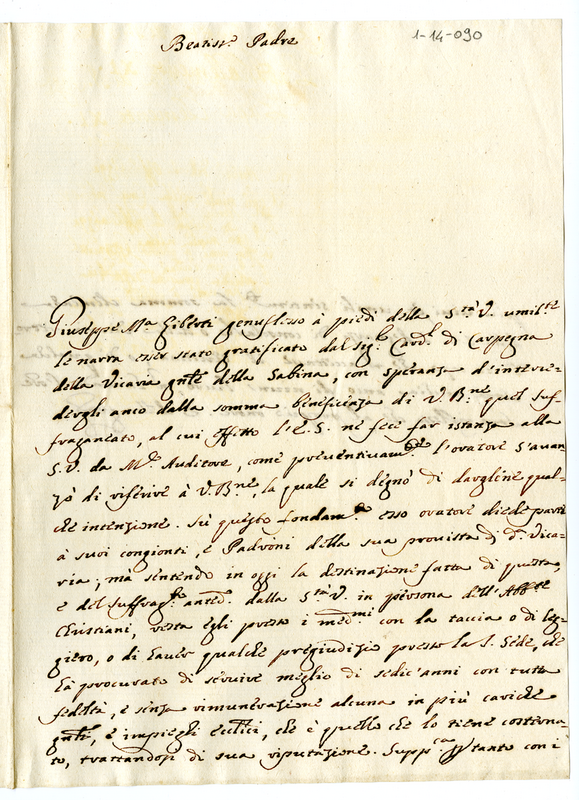 Beatis.mo Padre
1-14-090
Giuseppe M.a Giberti genuflesso à piedi della S.tà V. umilte
le narra esser stato gratificato dal sig.r Card.l di Carpegna
della Vicaria gnle della Sabina, con speranza d'interce-
dergli anco dalla somma beneficienza di V. B.ne quel suf-
fraganeato, al cui effetto l'E. S. ne fece far istanza alla
S. V. da M.r Auditore, come preventivam.te l'oratore s'avan-
zò di riferire à V. B.ne, la quale si degnò di dargline qual-
che intenzione. Sù questo fondam.to esso oratore diede parte
à suoi congionti, e Padroni della sua provista di d.a Vica-
ria; mà sentendo in oggi la destinazione fatta di questa,
e del suffrag.to anted.o dalla S.tà V. in persona dell'Abb.te
Christiani, resta egli presso i med.mi con la taccia o di leg-
giero, o di haver qualche pregiudizio presso la S. Sede, che
hà procurato di servire meglio di sedic'anni con tutta
fedeltà, e senza rimunerazione alcuna in più cariche
gnli, e impieghi ecclici, che è quello che lo tiene costerna-
to, trattandosi di sua riputazione. Supp.ca p tanto con i